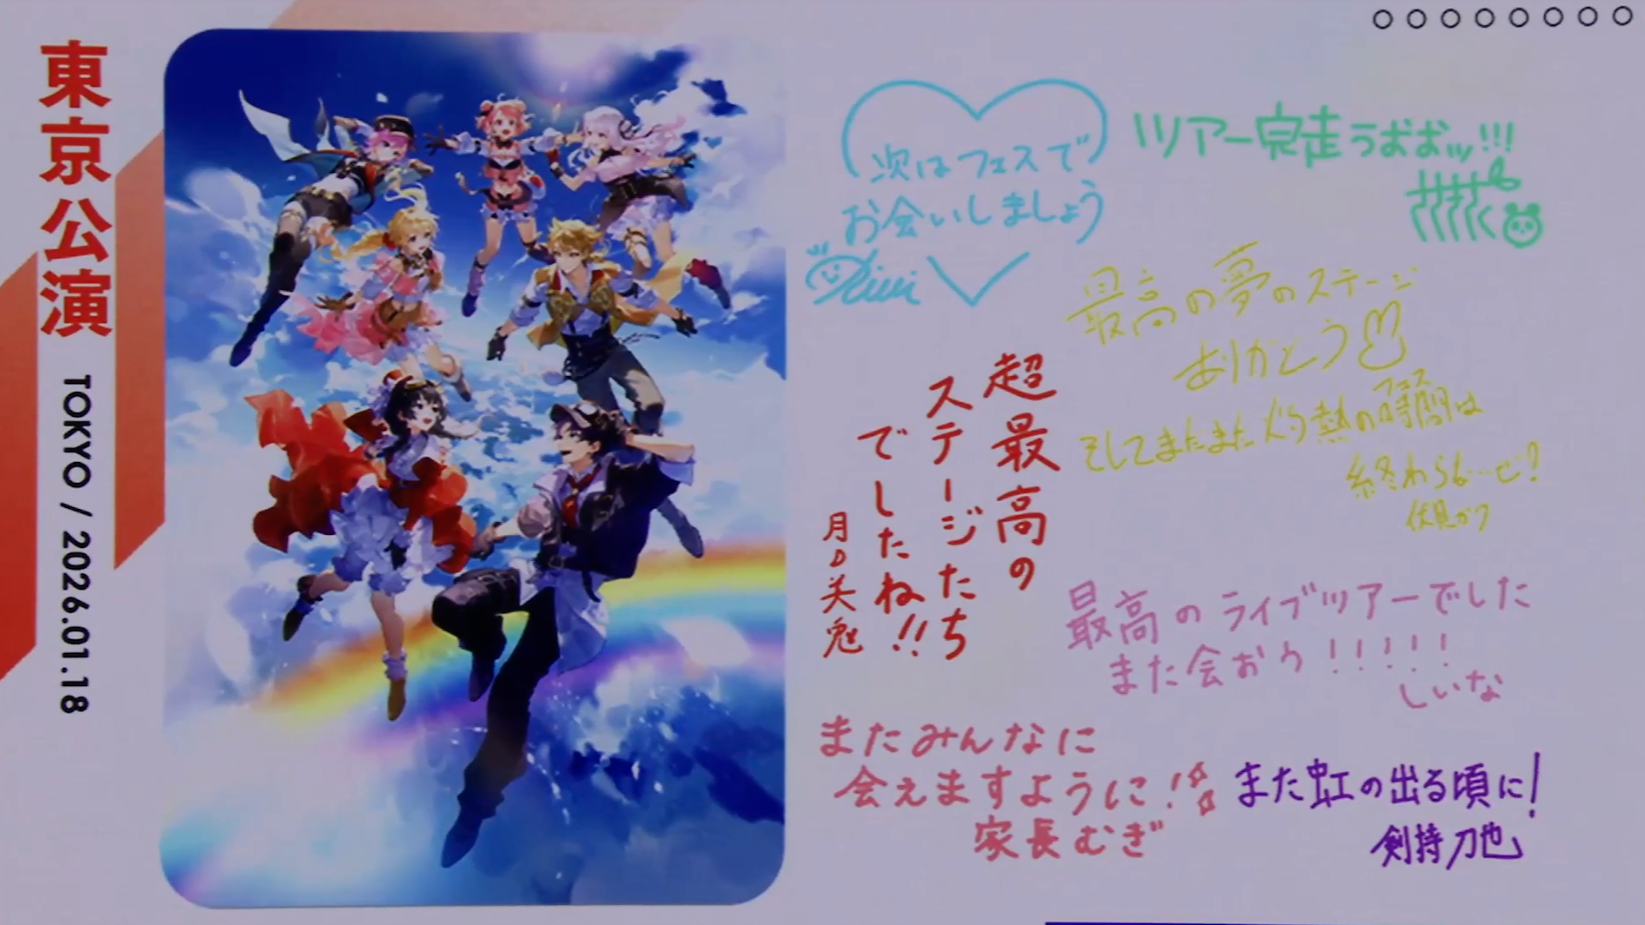 東京公演
TOKYO / 2026.01.18
次はフェスで
お会いしましょう
ツアー完走うおおッ!!!
最高の夢のステージ
ありがとう
そしてまたまた灼熱の時間は
フェス
終わらね…ぜ!
伏見ガク
超最高の
ステージたち
でしたね!!
月ノ美兎
最高のライブツアーでした
また会おう!!!!!
しいな
またみんなに
会えますように!
家長むぎ
また虹の出る頃に!
剣持刀也